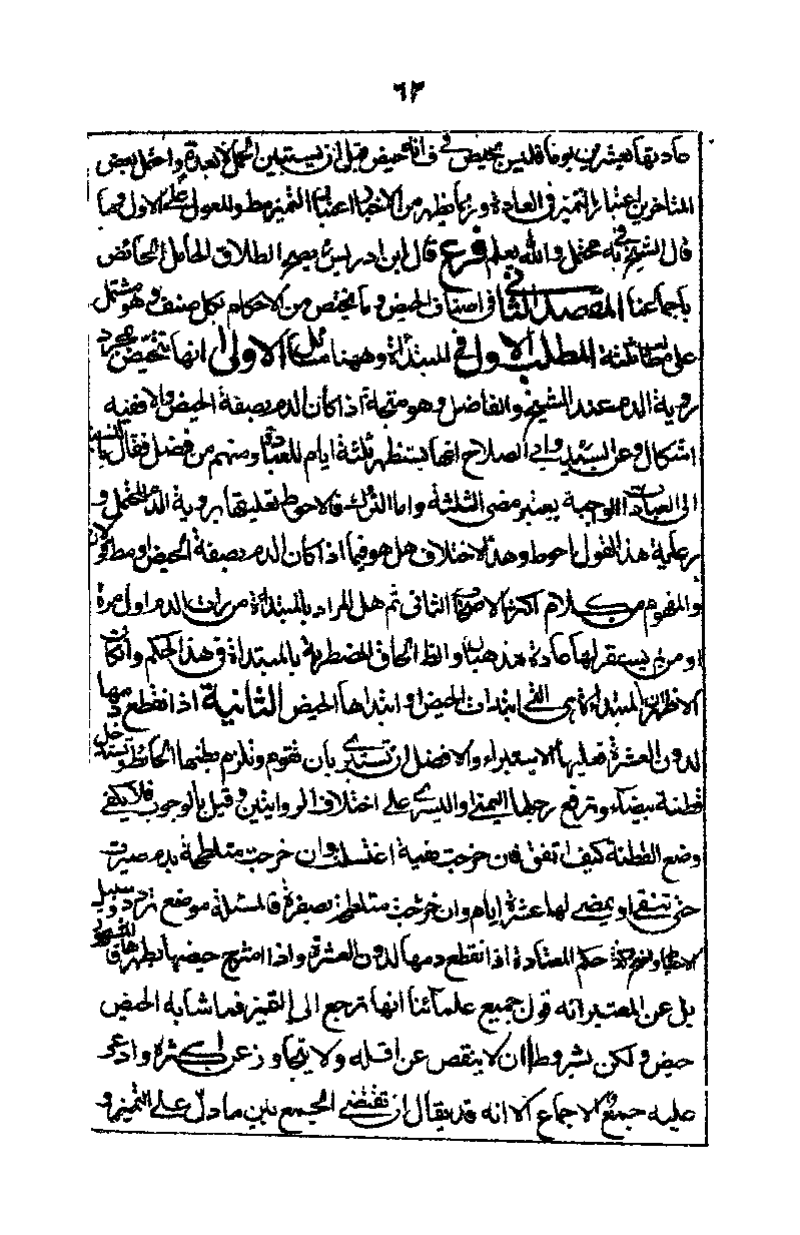 ٦٣
عادتها بعشرين يوما فليس بحيض فانه حيض قبل ان يستبين الحمل لا بعده واحتمل بعض
المتاخرين اعتبار التميز في العادة وربما يظهر من الاخبار اعتبار التميز مط والمعول على الاول وما
قال الشيخ محتمل والله يعلم فرع قال ابن ادريس يصح الطلاق الحامل الحائض
باجماعنا المقصد الثاني في اصناف الحيض وما يختص من الاحكام بكل صنف وهو مشتمل
على مطالب ثلثة المطلب الاول في المبتداة وههنا مسائل الاولى انها تتحيض بمجرد
روية الدم عند الشيخ والفاضل وهو متجه اذا كان الدم بصفة الحيض والا ففيه
اشكال وعن السيد وابي الصلاح انها تستظهر ثلثة ايام للعبادة ومنهم من فصل فقال بالنسبة
الى العبادات الوجبة يعتبر مضي الثلثة واما التروك فالاحوط تعليقها بروية الدم المحتمل و
رعاية هذا القول احوط وهذا الاختلاف هل هو فيما اذا كان الدم بصفة الحيض او مط قولان
والمفهوم من كلام اكثر الاصحاب الثاني ثم هل المراد بالمبتداة من رات الدم اول مرة
او من لم يستقر لها عادة مذهبان والظ الحاق المضطربة بالمبتداة في هذا الحكم وان كان
الاظهر ان المبتداة هي التي ابتدات الحيض او ابتداها الحيض الثانية اذا انقطع دمها
لدون العشرة فعليها الاستبراء والافضل ان تستبرئ بان تقوم وتلزم بطنها الحائط وتستدخل
قطنة بيضاء وترفع رجلها اليمنى او اليسرى على اختلاف الروايتين وقيل بالوجوب فلا يكفي
وضع القطنة كيف اتفق فان خرجت نقية اغتسلت وان خرجت متلطخة بدم صبرت
حتى تنقى او يمضي لها عشرة ايام وان خرجت متلطخة بصفرة فالمسئلة موضع تردد وسبيل
الاحتياط واضح وكذا حكم المعتادة اذا انقطع دمها لدون العشرة واذا امتزج حيضها بطهرها
بل عن المعتبر انه قول جميع علمائنا انها ترجع الى التميز فما شابه الحيض
حيض ولكن بشروط ان لا ينقص عن اقله ولا يتجاوز عن اكثره وادعى
عليه جمع الاجماع الا انه قد يقال ان مقتضى الجمع بين ما دل على التميز و